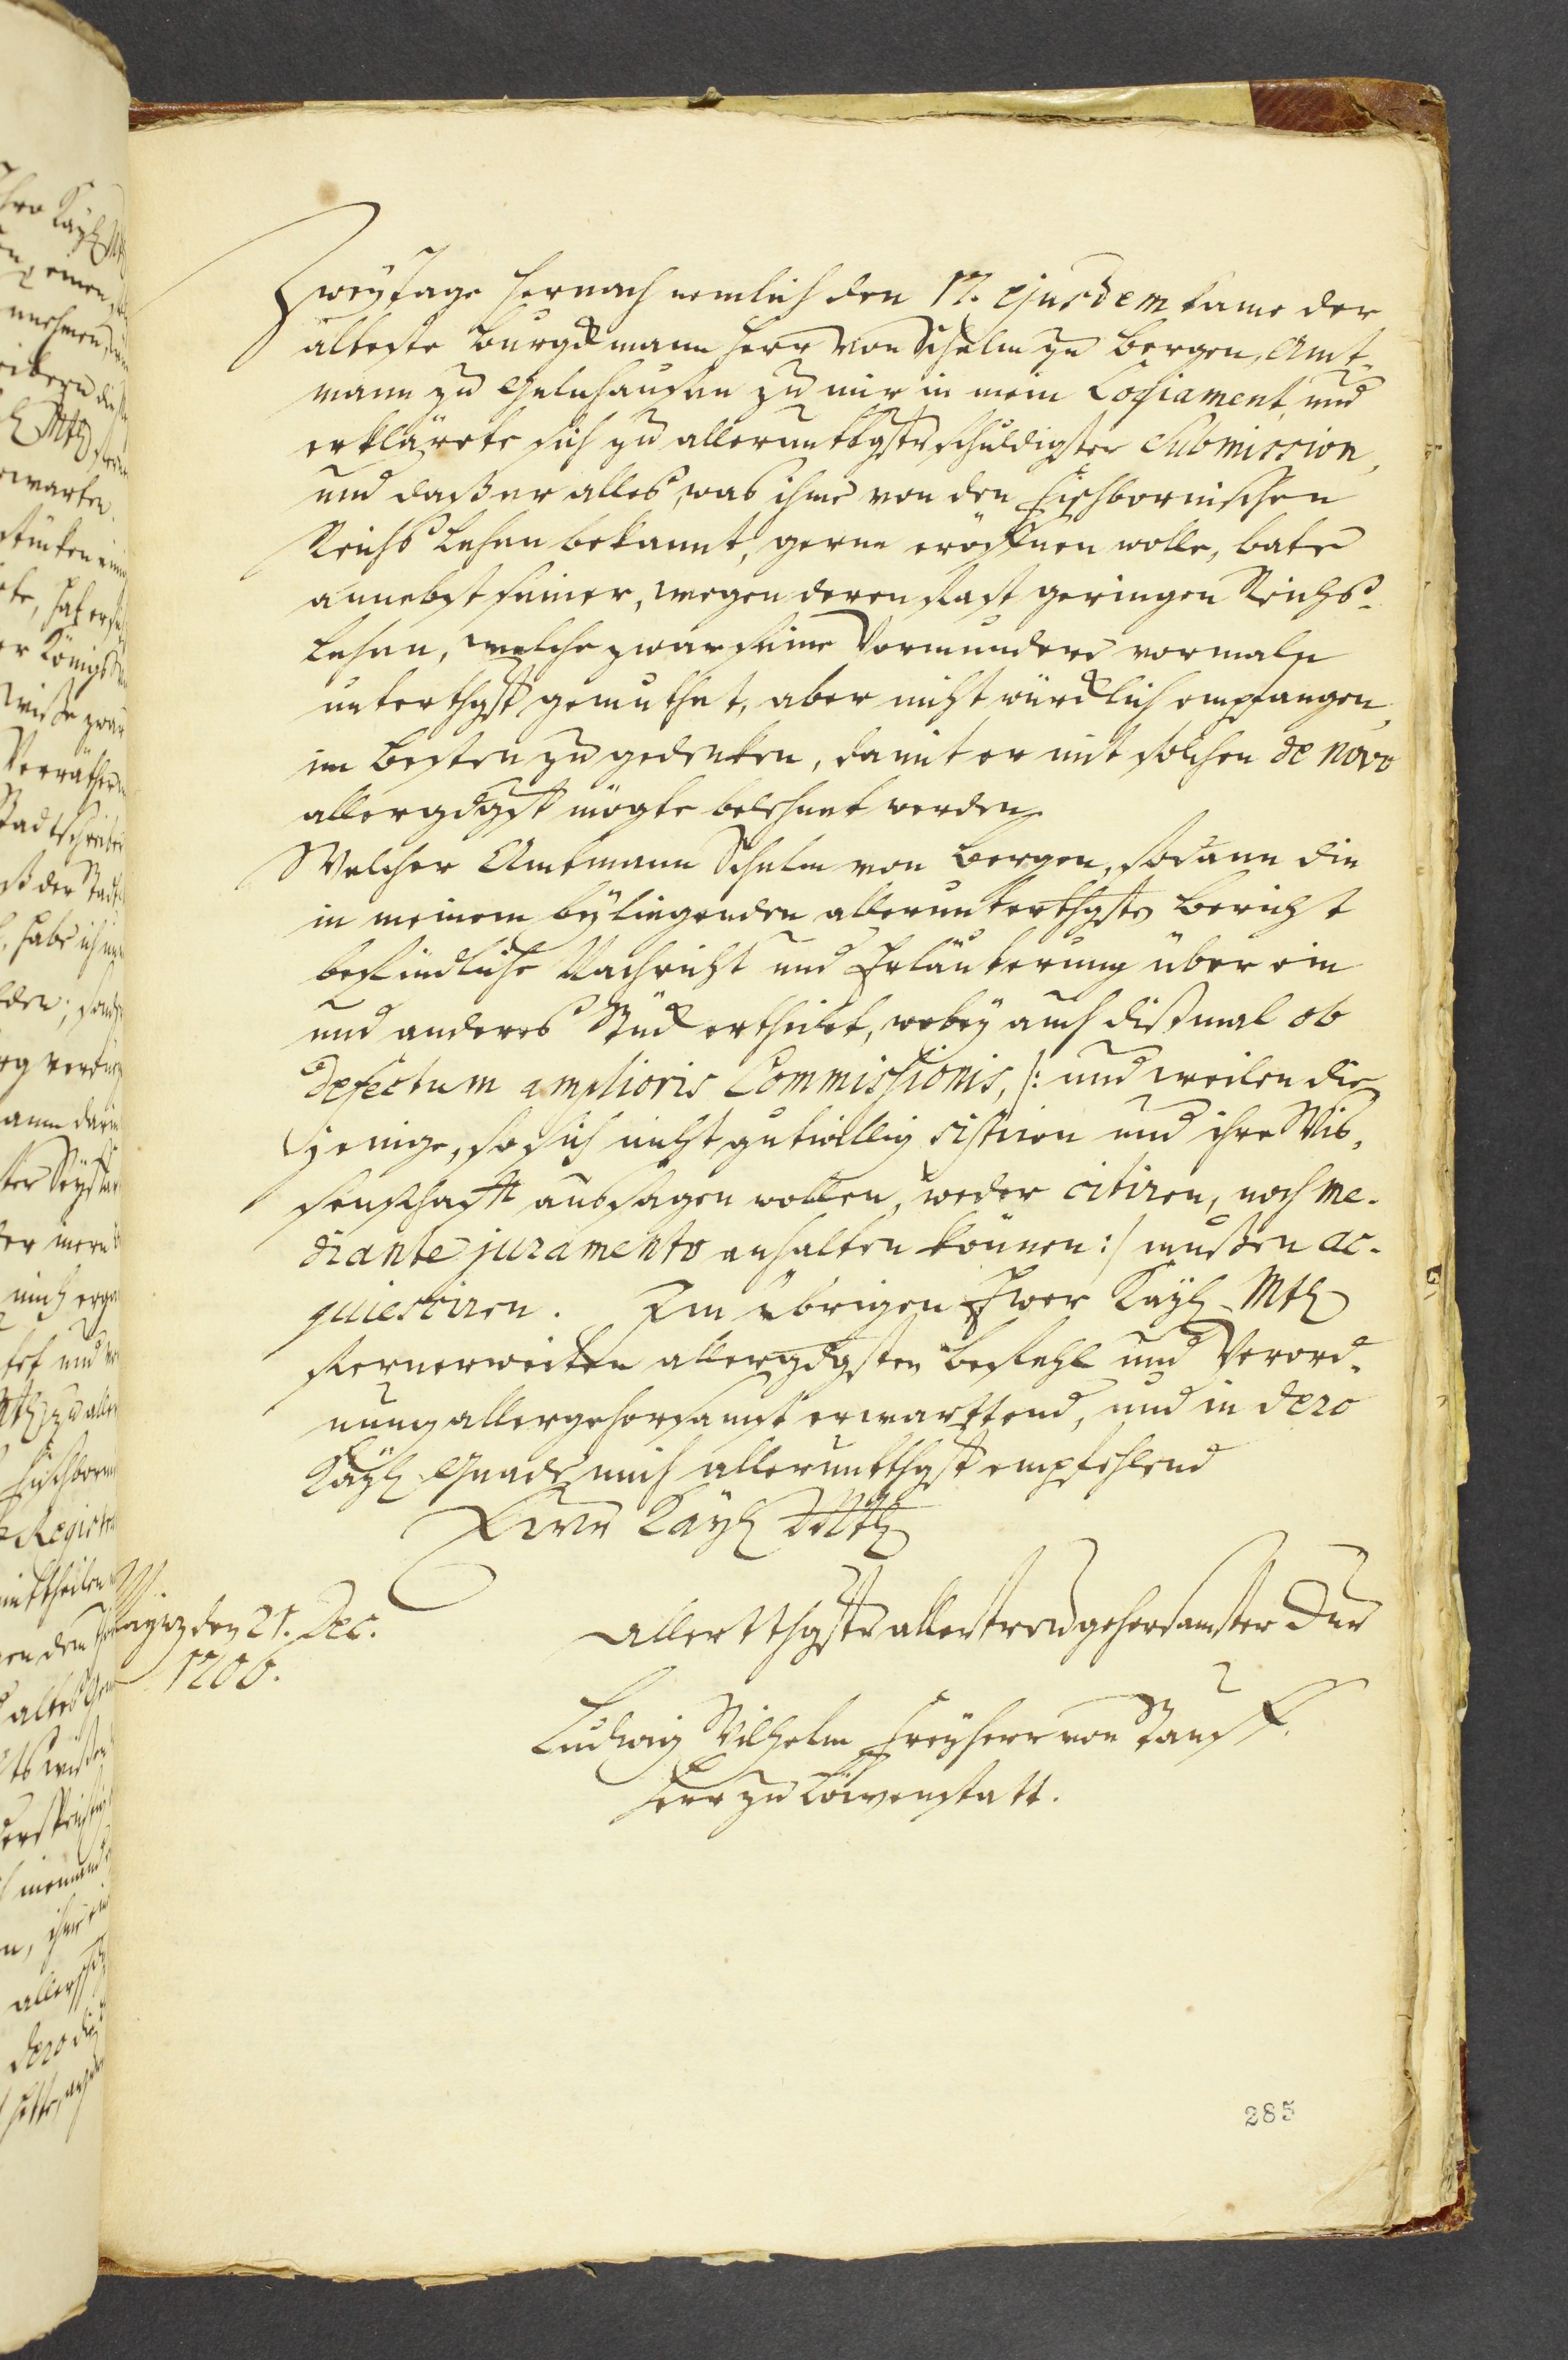 Zwey tage hernach nemlich den 17. ejusdem kame der
älteste Burgkmann Herr von Schelm zu Bergen, Amt-
mann zu Gelnhausen zu mir in mein Losiament, und
erklärete sich zu allerunttgster schuldigster Submission,
und daß er alles, was ihme von den Fischbornischen
Reichs Lehen bekannt, gerne eröffnen wolle, bate
annebst seiner, wegen deren fast geringen Reichs-
Lehen, welche zwar seine Vormundere vormals
unterthgst gemuthet, aber nicht würcklich empfangen,
im besten zu gedenken, damit er mit solchen de novo
allergdgst mögte belehnet werden.
Welcher Amtmann Schelm von Bergen, sodann die
in meinem byliegenden allerunterthgsten Bericht
befindliche Nachricht und Erläuterung über ein
und anderes Stück ertheilet, wobey auch dißmal ob
defectum amplioris Commissionis, /: und weilen die
jenige, so sich nicht gutwillig sistiren und ihre Wis-
senschafft aussagen wollen, weder citiren, noch me-
diante juramento anhalten können :/ mußen ac-
quiesciren. Im übrigen Ewer Kayl. Mtt
fernerweiten allergdgsten Befehl und Verord-
nung allergehorsamst erwarttend, und in dero
Kayl. Gnade mich allerunttthgst empfehlend
Ewer Kayl Mtt
Maynz den 21. Dec.
1706.
Allerttthgster allertreugehorsamster
Ludwig Wilhelm Freyherr von
Herr zu Löwenstatt.
285